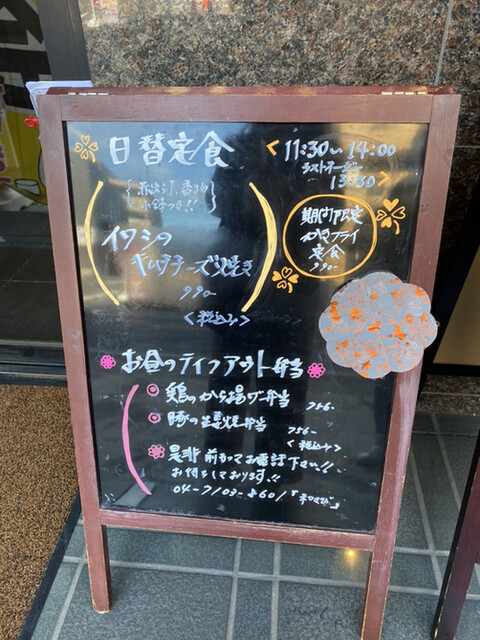 日替定食
11:30〜14:00
ラストオーダー
13:30
赤出汁、香物
小鉢つき!!
期間限定
カキフライ
定食
990-
イワシの
キムチチーズ焼き
990-
<税込み>
お昼のテイクアウト弁当
鶏のから揚げ弁当 756-
豚の生姜焼弁当 756-
<税込み>
是非 前もってお電話下さい!!
お待ちしております!!
04-7103-8601